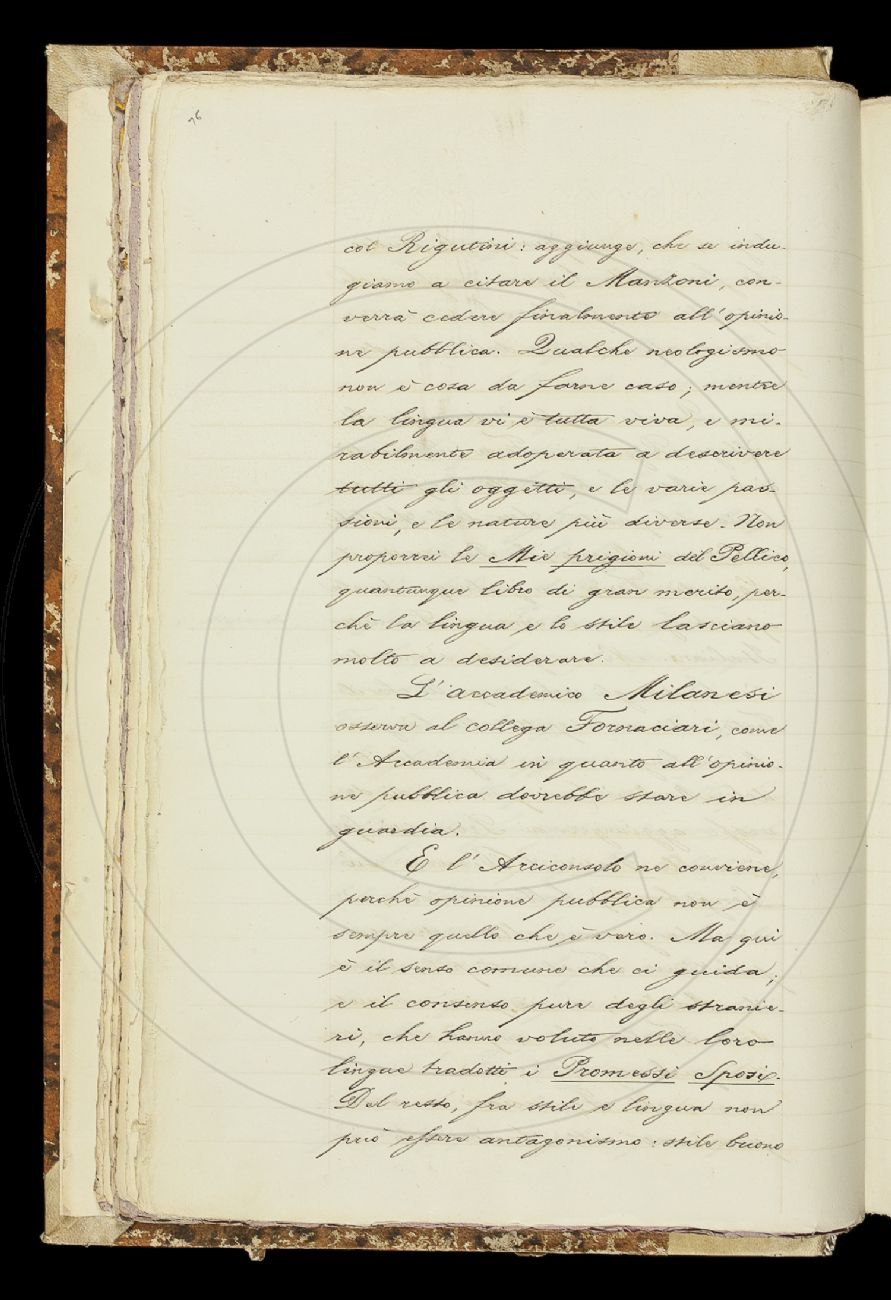 76
col Rigutini: aggiunge, che se indu-
giamo a citare il Manzoni, con-
verrà cedere finalmente all'opinio-
ne pubblica. Qualche neologismo
non è cosa da farne caso; mentre
la lingua vi è tutta viva, e mi-
rabilmente adoperata a descrivere
tutti gli oggetti, e le varie pas-
sioni, e le nature più diverse. Non
proporrei le Mie prigioni del Pellico,
quantunque libro di gran merito, per-
chè la lingua e lo stile lasciano
molto a desiderare.
L'accademico Milanesi
osserva al collega Fornaciari, come
l'Accademia in quanto all'opinio-
ne pubblica dovrebbe stare in
guardia.
E l'Arciconsolo ne conviene,
perchè opinione pubblica non è
sempre quello che è vero. Ma qui
è il senso comune che ci guida;
e il consenso pure degli stranie-
ri, che hanno voluto nelle loro
lingue tradotti i Promessi Sposi.
Del resto, fra stile e lingua non
può essere antagonismo: stile buono